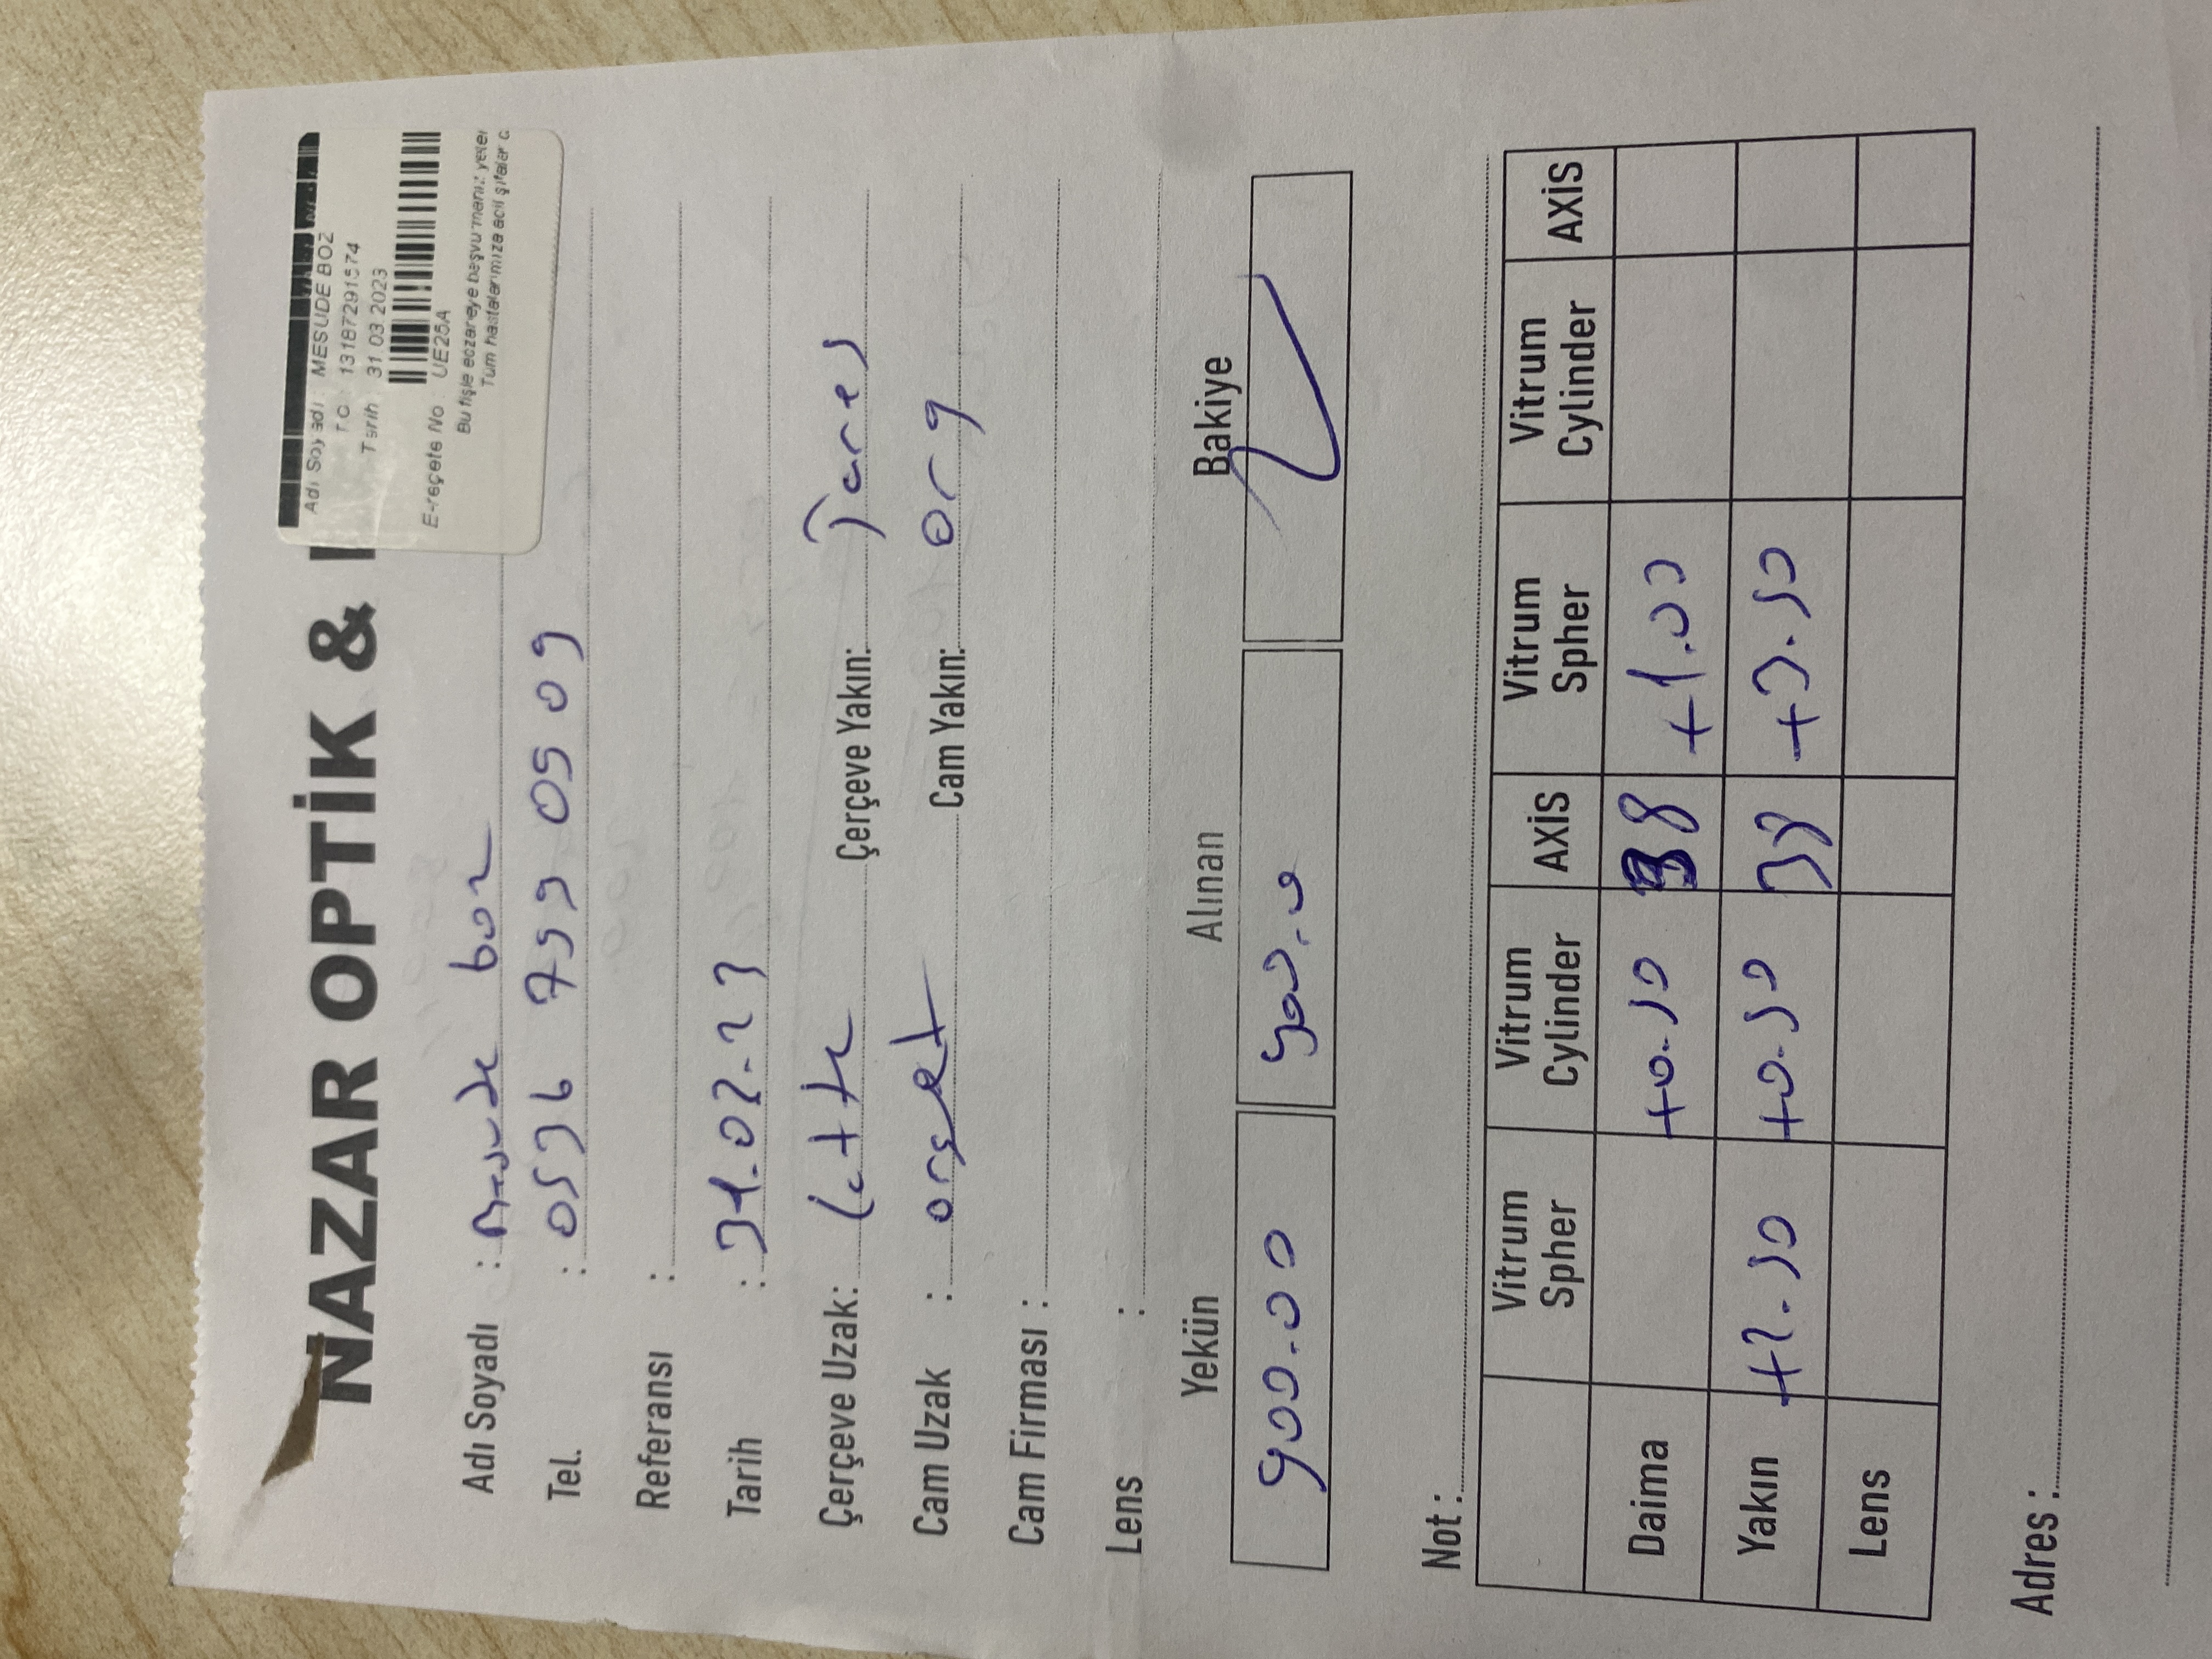 NAZAR OPTİK &
Adı Soyadı : MESUDE BOZ
T.C : 13187291574
Tarih : 31.03.2023
E-reçete No : UE25A
Bu fişle eczaneye başvurmanız yeter
Tüm hastalarımıza acil şifalar d
Adı Soyadı : Mesude boz
Tel. : 0536 799 09 09
Referansı :
Tarih : 31.03.23
Çerçeve Uzak: Çerçeve Yakın:
Cam Uzak : Cam Yakın: org
Cam Firması :
Lens :
Yekün Alınan Bakiye
900.00 900.0
Not :
Vitrum Spher Vitrum Cylinder AXİS Vitrum Spher Vitrum Cylinder AXİS
Daima +0.50 38 +1.00
Yakın +2.50 +0.50 38 +3.50
Lens
Adres :